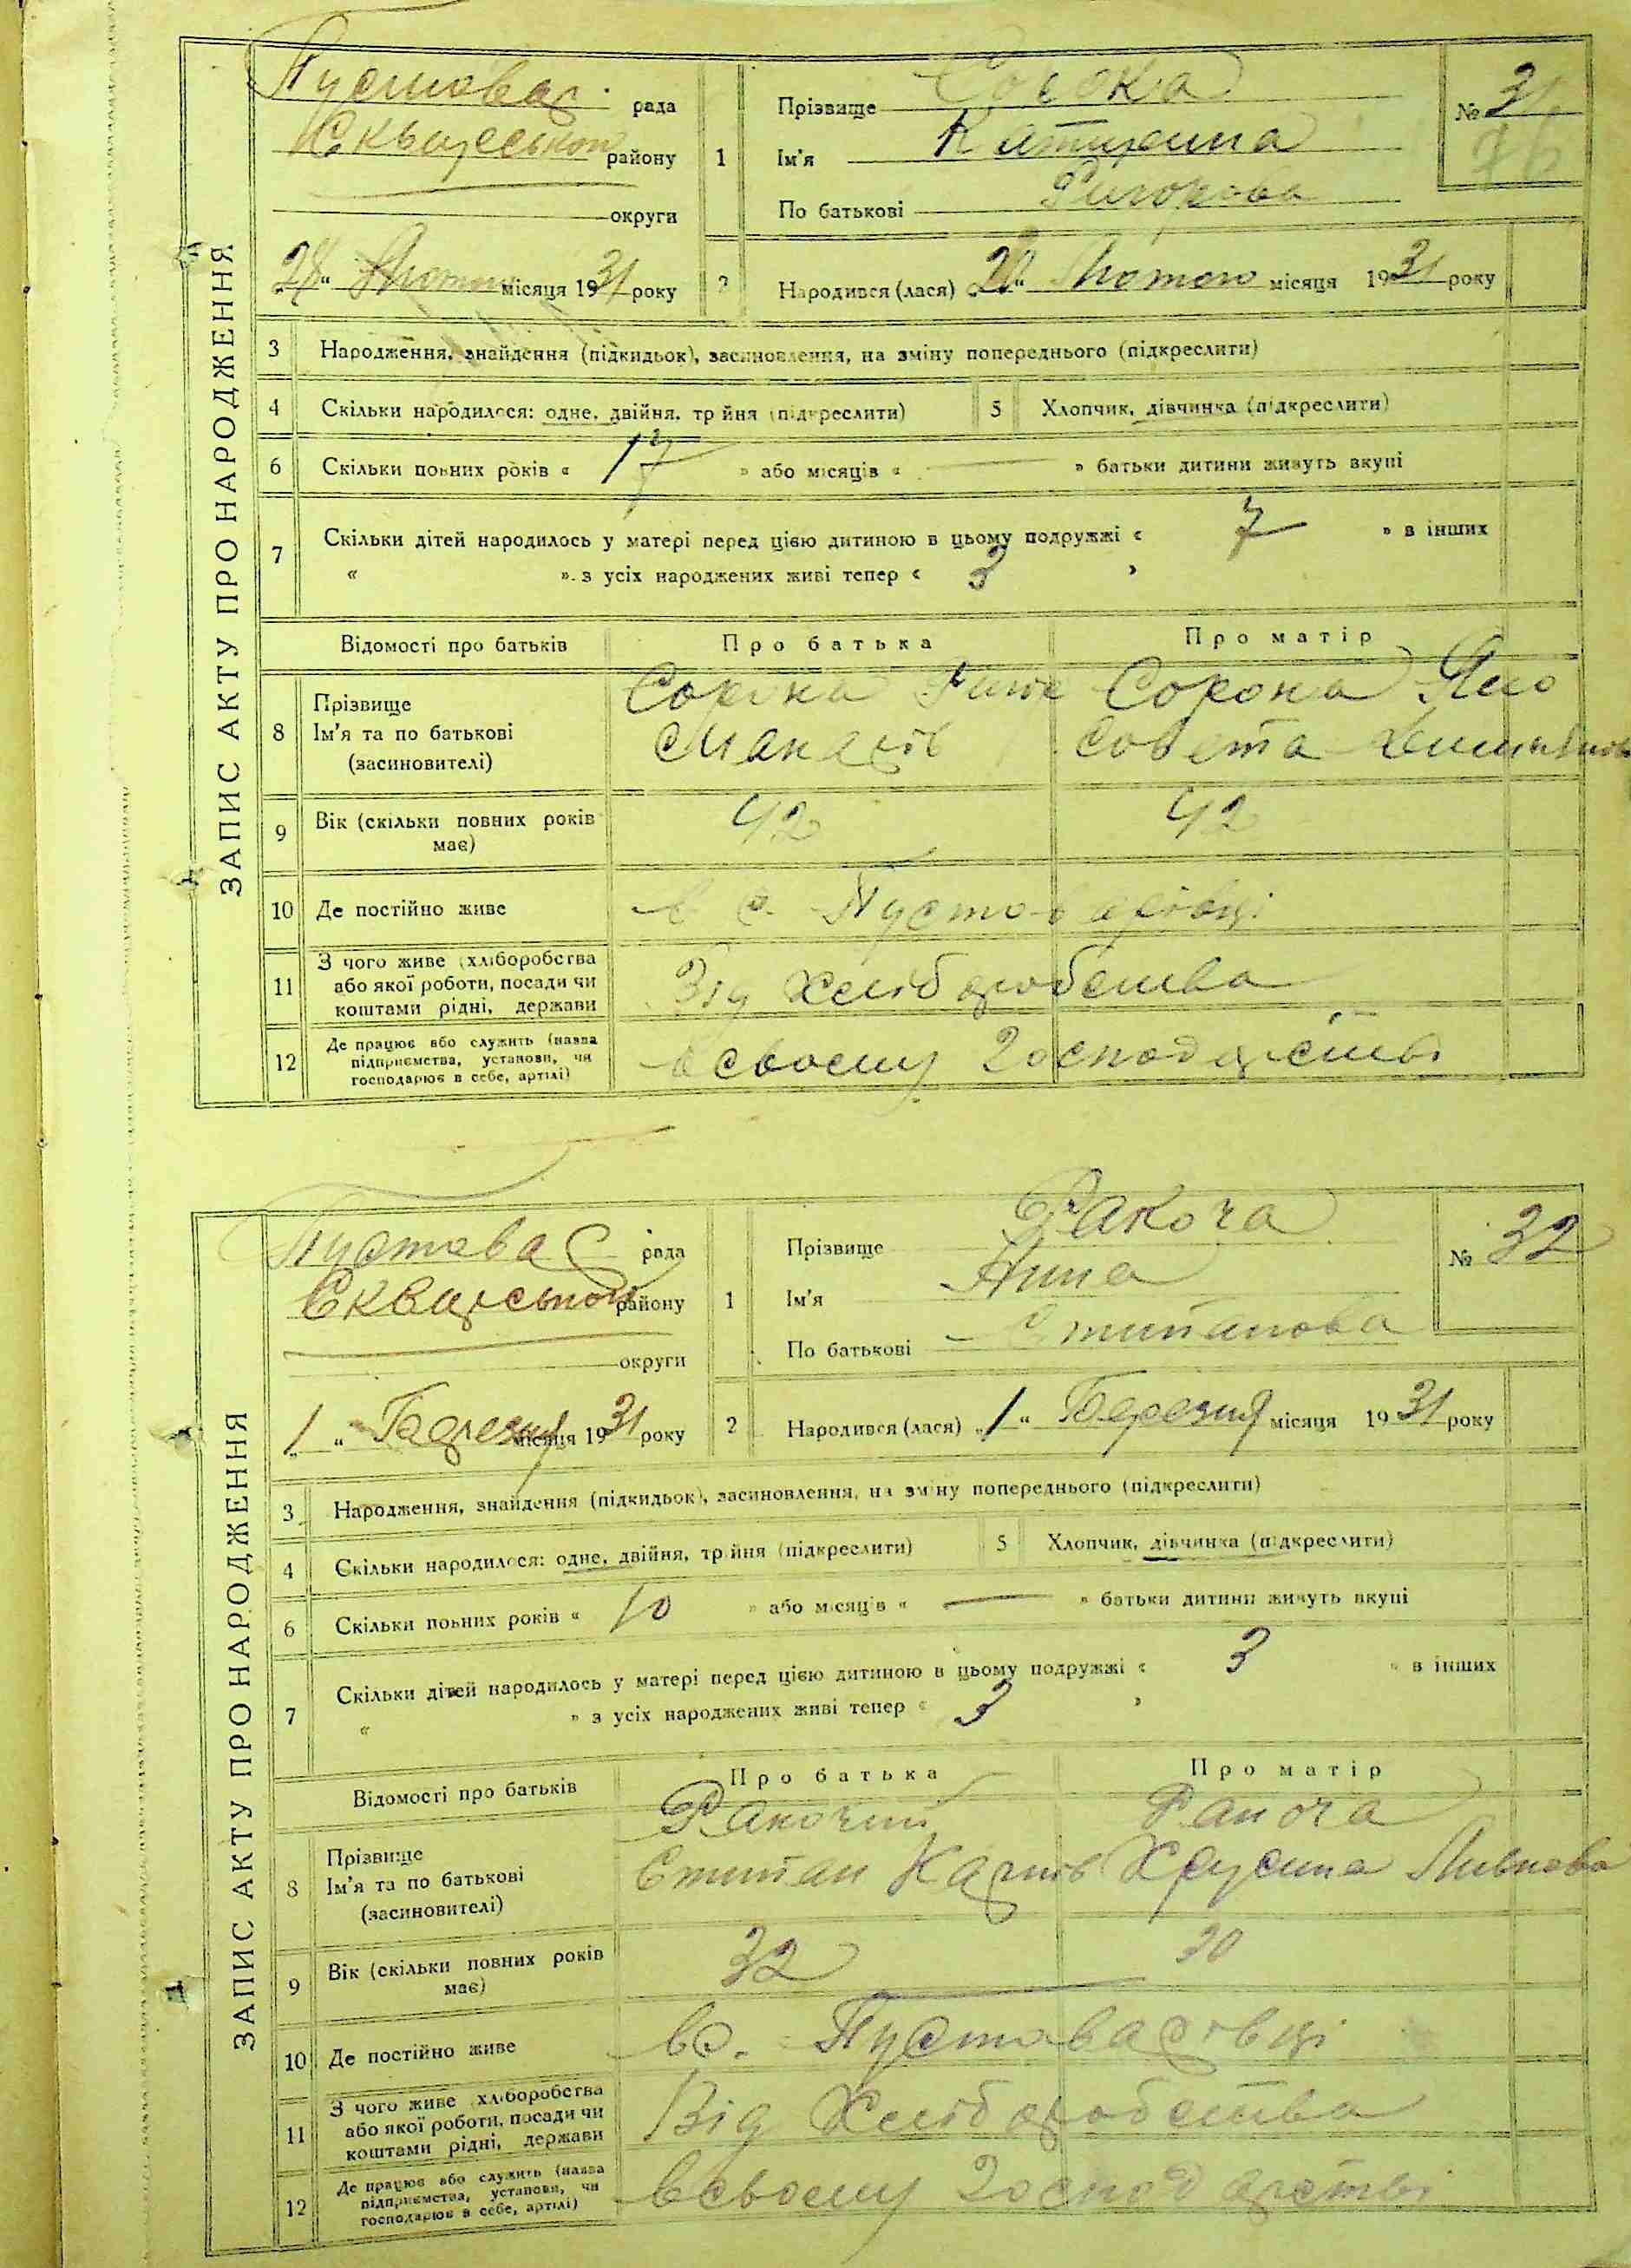 ЗАПИС АКТУ ПРО НАРОДЖЕННЯ
Пустовар. рада
Сквирського району
округи
„28“ Лютого місяця 1931 року
1
Прізвище Сорока
Ім'я Катерина
По батькові
№ 31
2
Народився (лася) Лютого місяця 1931 року
3 Народження, знайдення (підкидьок), засиновлення, на зміну попереднього (підкреслити)
4 Скільки народилося: одне, двійня, трійня (підкреслити)
5 Хлопчик, дівчинка (підкреслити)
6 Скільки повних років « 17 » або місяців « — » батьки дитини живуть вкупі
7 Скільки дітей народилось у матері перед цією дитиною в цьому подружжі « 7 » в інших
« » з усіх народжених живі тепер « 3 »
Відомості про батьків Про батька Про матір
8 Прізвище
Ім'я та по батькові
(засиновителі)
Сорока
Сорока Яво
9 Вік (скільки повних років має) 42 42
10 Де постійно живе в с. Пустоварівці
11 З чого живе (хліборобства
або якої роботи, посади чи
коштами рідні, держави
Від Хліборобства
12 Де працює або служить (назва
підприємства, установи, чи
господарює в себе, артілі)
в своєму Господарстві
ЗАПИС АКТУ ПРО НАРОДЖЕННЯ
Пустовар рада
Сквирської району
округи
„1“ Березня місяця 1931 року
1
Прізвище Ракоча
Ім'я Нина
По батькові Степанова
№ 32
2
Народився (лася) „1“ Березня місяця 1931 року
3 Народження, знайдення (підкидьок), засиновлення, на зміну попереднього (підкреслити)
4 Скільки народилося: одне, двійня, трійня (підкреслити)
5 Хлопчик, дівчинка (підкреслити)
6 Скільки повних років « 10 » або місяців « — » батьки дитини живуть вкупі
7 Скільки дітей народилось у матері перед цією дитиною в цьому подружжі « 3 » в інших
« » з усіх народжених живі тепер « 3 »
Відомості про батьків Про батька Про матір
8 Прізвище
Ім'я та по батькові
(засиновителі)
Ракочий Ракоча
Степан Карпів
9 Вік (скільки повних років має) 32 30
10 Де постійно живе в с. Пустоварівці
11 З чого живе (хліборобства
або якої роботи, посади чи
коштами рідні, держави
Від Хліборобства
12 Де працює або служить (назва
підприємства, установи, чи
господарює в себе, артілі)
в своєму Господарстві